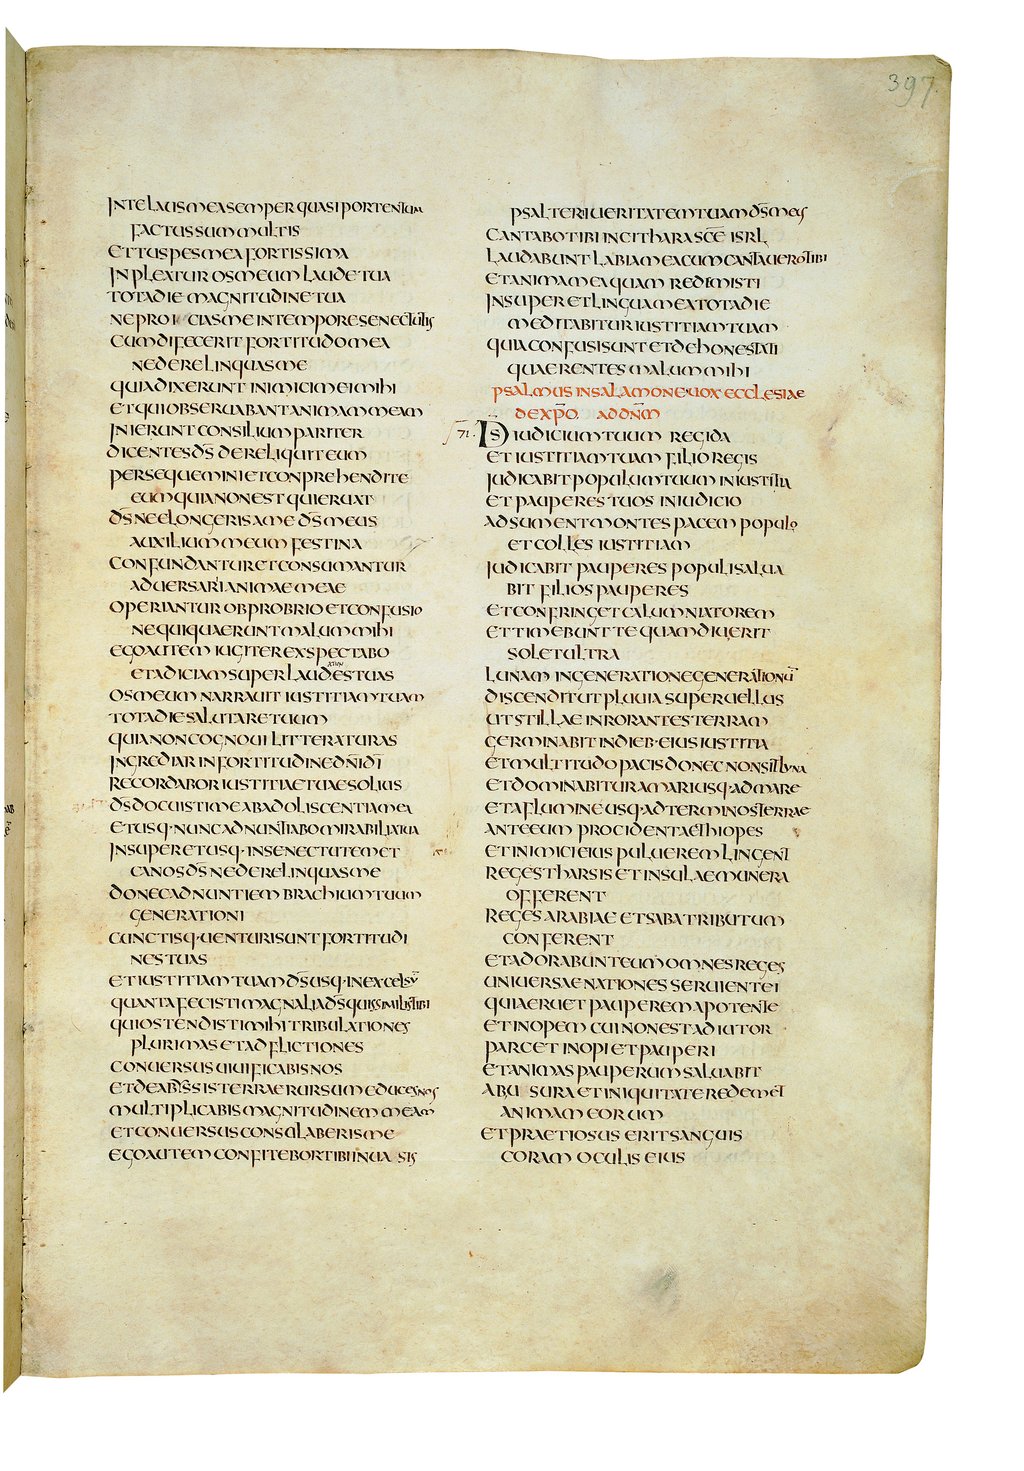 397
INTELAUSMEASEMPERQUASIPORTENTUM
FACTUSSUMMULTIS
ETTUSPESMEAFORTISSIMA
INPLEATUROSMEUMLAUDETUA
TOTADIEMAGNITUDINETUA
NEPROICIASMEINTEMPORESENECTUTIS
CUMDIFECERITFORTITUDOMEA
NEDERELINQUASME
QUIADIXERUNTINIMICIMEIMIHI
ETQUIOBSERUABANTANIMAMMEAM
INIERUNTCONSILIUMPARITER
DICENTESD̅S̅DERELIQUITEUM
PERSEQUEMINIETCONPREHENDITE
EUMQUIANONESTQUIERUAT
D̅S̅NEELONGERISAMED̅S̅MEUS
AUXILIUMMEUMFESTINA
CONFUNDANTURETCONSUMANTUR
ADUERSARIANIMAEMEAE
OPERIANTUROBPROBRIOETCONFUSIO
NEQUIQUAERUNTMALUMMIHI
EGOAUTEMIUGITEREXSPECTABO
ETADICIAMSUPERLAUDESTUAS
OSMEUMNARRAUITIUSTITIAMTUAM
TOTADIESALUTARETUUM
QUIANONCOGNOUILITTERATURAS
INGREDIARINFORTITUDINED̅N̅ID̅I̅
RECORDABORIUSTITIAETUAESOLIUS
D̅S̅DOCUISTIMEABADOLISCENTIAMEA
ETUSQ·NUNCADNUNTIABOMIRABILIATUA
INSUPERETUSQ·INSENECTUTEMET
CANOSD̅S̅NEDERELINQUASME
DONECADNUNTIEMBRACHIUMTUUM
GENERATIONI
CUNCTISQ·UENTURISUNTFORTITUDI
NESTUAS
ETIUSTITIAMTUAMD̅S̅USQ·INEXCELSU̅
QUANTAFECISTIMAGNALIAD̅S̅QUISSIMILISTIBI
QUIOSTENDISTIMIHITRIBULATIONES
PLURIMASETADFLICTIONES
CONUERSUSUIUIFICABISNOS
ETDEABISSISTERRAERURSUMEDUCESNOS
MULTIPLICABISMAGNITUDINEMMEAM
ETCONUERSUSCONSULABERISME
EGOAUTEMCONFITEBORTIBIINUASIS
PSALTERIUERITATEMTUAMD̅S̅MEUS
CANTABOTIBIINCITHARAS̅C̅E̅ISRL
LAUDABUNTLABIAMEACUMCANTAUEROTIBI
ETANIMAMEAQUAMREDEMISTI
INSUPERETLINGUAMEATOTADIE
MEDITABITURIUSTITIAMTUAM
QUIACONFUSISUNTETDEHONESTATI
QUAERENTESMALUMMIHI
PSALMUSINSALAMONEUOXECCLESIAE
DEX̅P̅O̅ADD̅N̅M̅
71·D̅S̅IUDICIUMTUUMREGIDA
ETIUSTITIAMTUAMFILIOREGIS
IUDICABITPOPULUMTUUMINIUSTITIA
ETPAUPERESTUOSINIUDICIO
ADSUMENTMONTESPACEMPOPULO
ETCOLLESIUSTITIAM
IUDICABITPAUPERESPOPULISALUA
BITFILIOSPAUPERES
ETCONFRINGETCALUMNIATOREM
ETTIMEBUNTTEQUAMDIUERIT
SOLETULTRA
LUNAMINGENERATIONEGENERATIONU̅
DISCENDITUTPLUUIASUPERUELLUS
UTSTILLAEINRORANTESTERRAM
GERMINABITINDIEB·EIUSIUSTITIA
ETMULTITUDOPACISDONECNONSITLUNA
ETDOMINABITURAMARIUSQ·ADMARE
ETAFLUMINEUSQ·ADTERMINOSTERRAE
ANTEEUMPROCIDENTAETHIOPES
ETINIMICIEIUSPULUEREMLINGENT
REGESTHARSISETINSULAEMUNERA
OFFERENT
REGESARABIAEETSABATRIBUTUM
CONFERENT
ETADORABUNTEUMOMNESREGES
UNIUERSAENATIONESSERUIENTEI
QUIAERUETPAUPEREMAPOTENTE
ETINOPEMCUINONESTADIUTOR
PARCETINOPIETPAUPERI
ETANIMASPAUPERUMSALUABIT
ABUSURAETINIQUITATEREDEMET
ANIMAMEORUM
ETPRAETIOSUSERITSANGUIS
CORAMOCULISEIUS